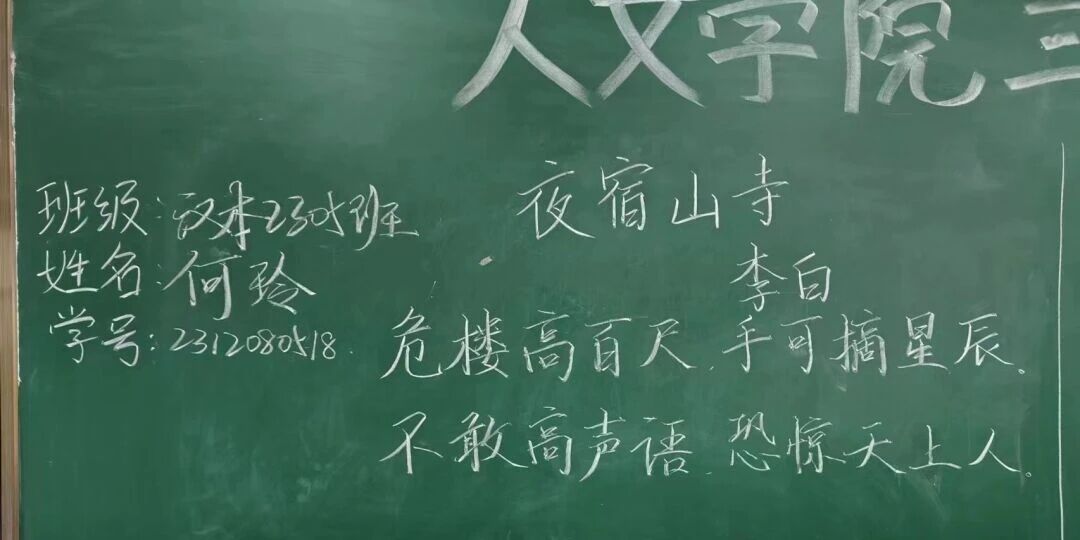 人文学院三
班级：汉本2305班
姓名：何玲
学号：2312080518.
夜宿山寺
李白
危楼高百尺，手可摘星辰。
不敢高声语，恐惊天上人。